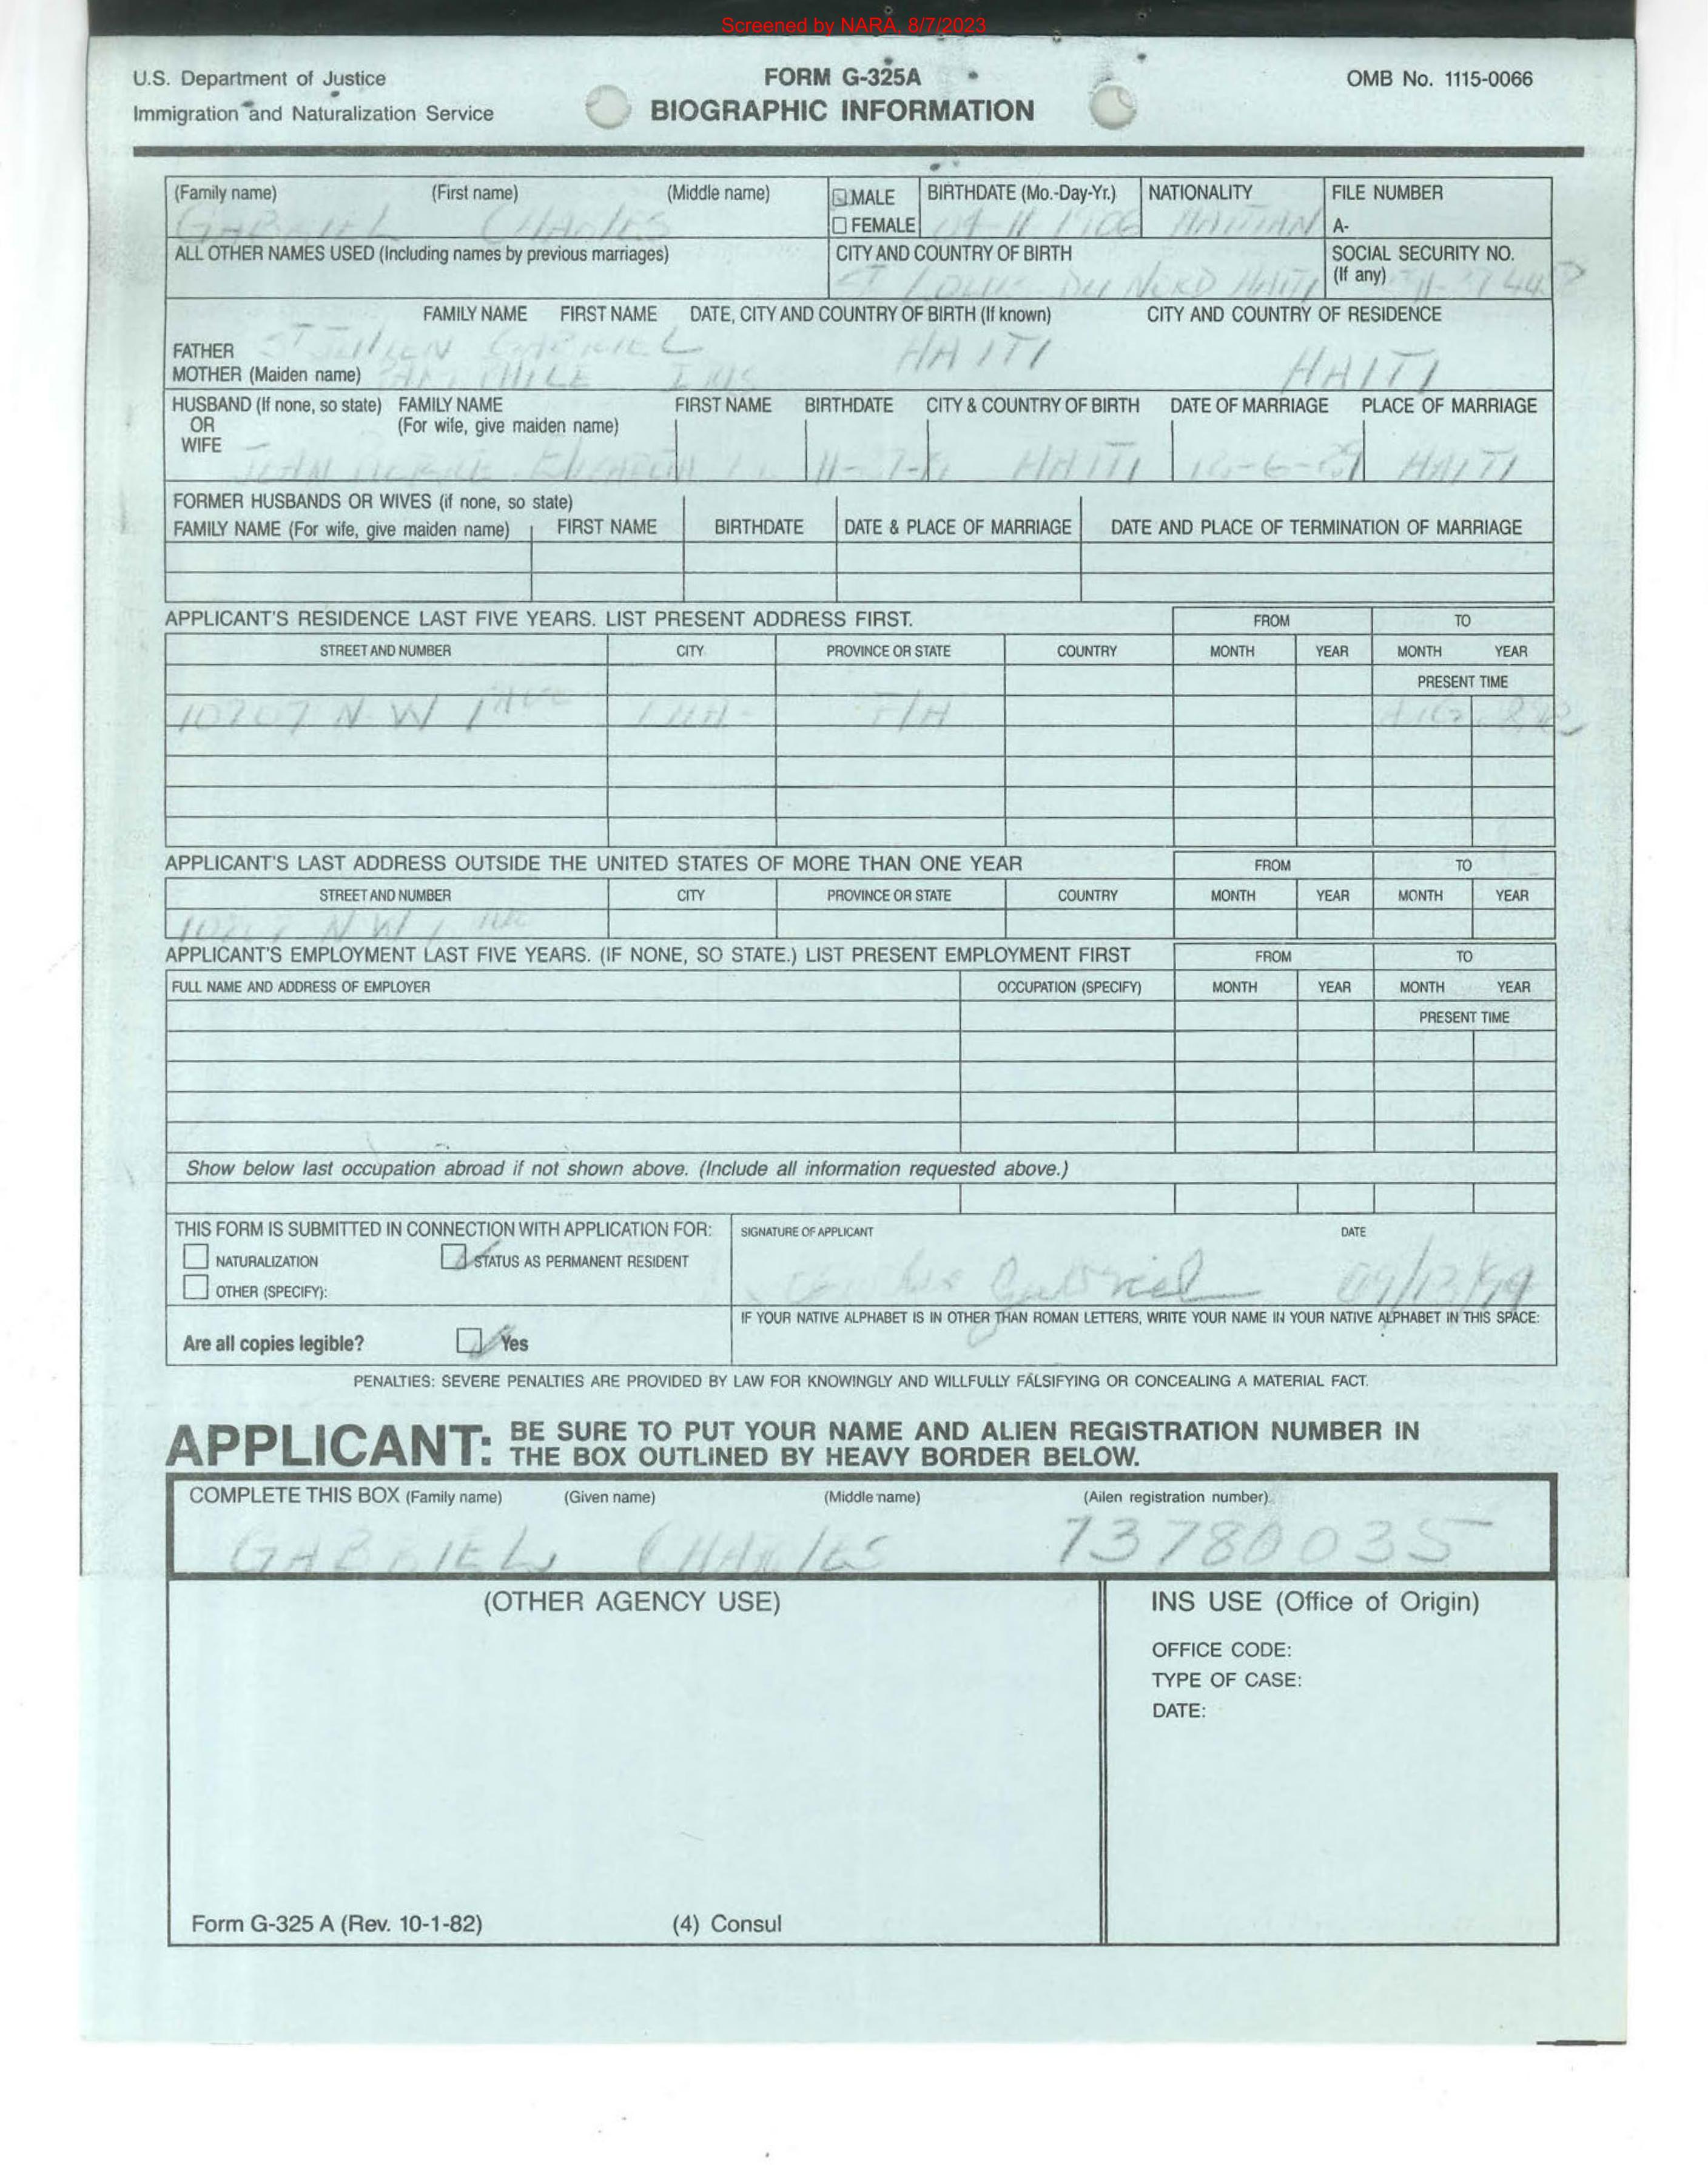 Screened by NARA, 8/7/2023
U.S. Department of Justice
Immigration and Naturalization Service
FORM G-325A
BIOGRAPHIC INFORMATION
OMB No. 1115-0066
(Family name) (First name) (Middle name) MALE BIRTHDATE (Mo.-Day-Yr.) NATIONALITY FILE NUMBER
FEMALE A-
GABRIEL CHARLES HAITIAN
ALL OTHER NAMES USED (Including names by previous marriages) CITY AND COUNTRY OF BIRTH SOCIAL SECURITY NO.
(If any)
ST LOUIS DU NORD HAITI
FAMILY NAME FIRST NAME DATE, CITY AND COUNTRY OF BIRTH (If known) CITY AND COUNTRY OF RESIDENCE
FATHER ST JULIEN GABRIEL HAITI HAITI
MOTHER (Maiden name)
HUSBAND (If none, so state) FAMILY NAME FIRST NAME BIRTHDATE CITY & COUNTRY OF BIRTH DATE OF MARRIAGE PLACE OF MARRIAGE
OR (For wife, give maiden name)
WIFE
JEAN HAITI HAITI
FORMER HUSBANDS OR WIVES (if none, so state)
FAMILY NAME (For wife, give maiden name) FIRST NAME BIRTHDATE DATE & PLACE OF MARRIAGE DATE AND PLACE OF TERMINATION OF MARRIAGE
APPLICANT'S RESIDENCE LAST FIVE YEARS. LIST PRESENT ADDRESS FIRST. FROM TO
STREET AND NUMBER CITY PROVINCE OR STATE COUNTRY MONTH YEAR MONTH YEAR
PRESENT TIME
10207 N W 1 AVE
APPLICANT'S LAST ADDRESS OUTSIDE THE UNITED STATES OF MORE THAN ONE YEAR FROM TO
STREET AND NUMBER CITY PROVINCE OR STATE COUNTRY MONTH YEAR MONTH YEAR
10207 N W 1 AVE
APPLICANT'S EMPLOYMENT LAST FIVE YEARS. (IF NONE, SO STATE.) LIST PRESENT EMPLOYMENT FIRST FROM TO
FULL NAME AND ADDRESS OF EMPLOYER OCCUPATION (SPECIFY) MONTH YEAR MONTH YEAR
PRESENT TIME
Show below last occupation abroad if not shown above. (Include all information requested above.)
THIS FORM IS SUBMITTED IN CONNECTION WITH APPLICATION FOR: SIGNATURE OF APPLICANT DATE
NATURALIZATION STATUS AS PERMANENT RESIDENT
OTHER (SPECIFY):
Charles Gabriel
IF YOUR NATIVE ALPHABET IS IN OTHER THAN ROMAN LETTERS, WRITE YOUR NAME IN YOUR NATIVE ALPHABET IN THIS SPACE:
Are all copies legible? Yes
PENALTIES: SEVERE PENALTIES ARE PROVIDED BY LAW FOR KNOWINGLY AND WILLFULLY FALSIFYING OR CONCEALING A MATERIAL FACT.
APPLICANT: BE SURE TO PUT YOUR NAME AND ALIEN REGISTRATION NUMBER IN
THE BOX OUTLINED BY HEAVY BORDER BELOW.
COMPLETE THIS BOX (Family name) (Given name) (Middle name) (Ailen registration number)
GABRIEL CHARLES 73780035
(OTHER AGENCY USE) INS USE (Office of Origin)
OFFICE CODE:
TYPE OF CASE:
DATE:
Form G-325 A (Rev. 10-1-82) (4) Consul